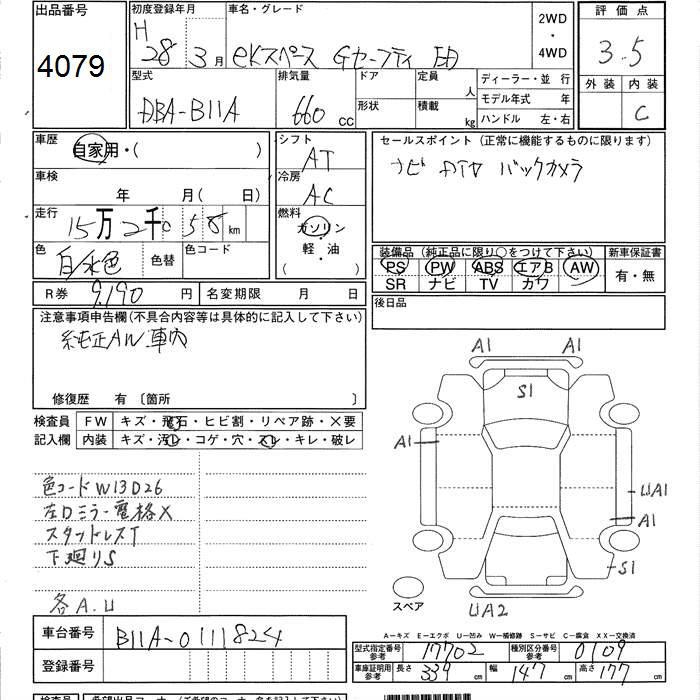 出品番号
4079
初度登録年月
H 28 3月
車名・グレード
eKスペース Gセーフティ ED
2WD
・
4WD
評価点
3.5
外装 内装
C
型式
DBA-B11A
排気量
660 cc
ドア
形状
定員
人
積載
kg
ディーラー・並 行
モデル年式 年
ハンドル 左・右
車歴
自家用・( )
シフト
AT
車検
年 月 ( 日)
冷房
AC
走行
15万2千058 km
燃料
ガソリン
軽・油
( )
色
白/水色
色替
色コード
R券 9,190 円
名変期限 月 日
セールスポイント (正常に機能するものに限ります)
ナビ ETC バックカメラ
装備品 (純正品に限り○をつけて下さい)
PS PW ABS エアB AW
SR ナビ TV カワ
新車保証書
有・無
後日品
注意事項申告欄(不具合内容等は具体的に記入して下さい)
純正AW車内
修復歴 有 〔箇所 〕
検査員
記入欄
FW キズ・飛石・ヒビ割・リペア跡・×要
内装 キズ・汚レ・コゲ・穴・スレ・キレ・破レ
色コードW13D26
左Dミラー電格×
スタッドレスT
下廻りS
各A.U
A1 A1
S1
A1
UA1
A1
S1
UA2
スペア
A−キズ E−エクボ U−凹み W−補修跡 S−サビ C−腐食 XX−交換済
車台番号
B11A-0111824
登録番号
型式指定番号
参考
17702
種別区分番号
参考
0109
車庫証明用
参考
長さ 339 cm 幅 147 cm 高さ 177 cm